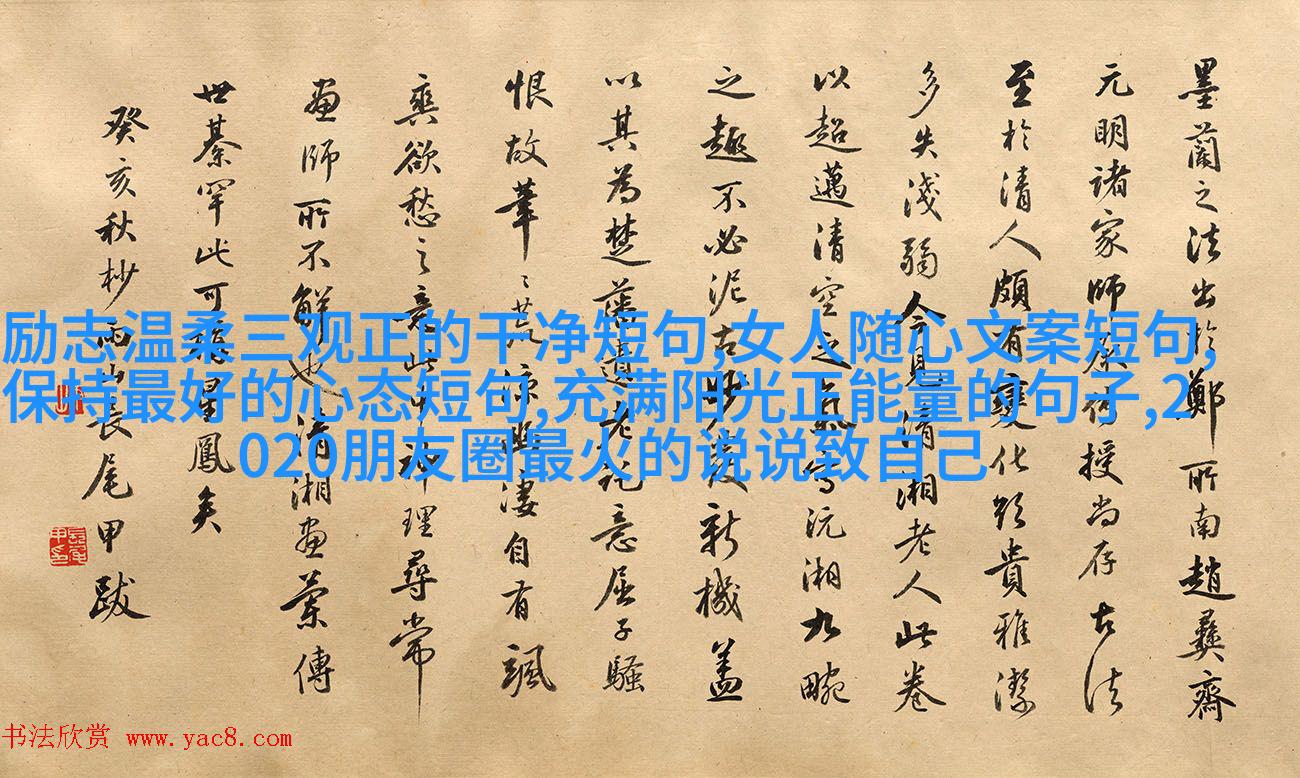 墨蘭之法出於鄭所南趙彝齋
元明諸家師承傳授尚存古法
至於清人頗有變化貴雅潔
多失淺弱今見清湘老人此卷
以超邁清空之氣寫沅湘九畹
之趣不必泥古妙發新機蓋
以其為楚藩遺老託意屈子騷
恨故筆〻荒涼幽淒自有颯
爽欲愁之意此中神理尋常
畫師所不解也清湘畫蘭傳
世綦罕此可稱星鳳矣
癸亥秋杪雨山長尾甲跋
励志温柔三观正的干净短句,女人随心文案短句,
保持最好的心态短句,充满阳光正能量的句子,2
020朋友圈最火的说说致自己
书法欣赏 www.yac8.com